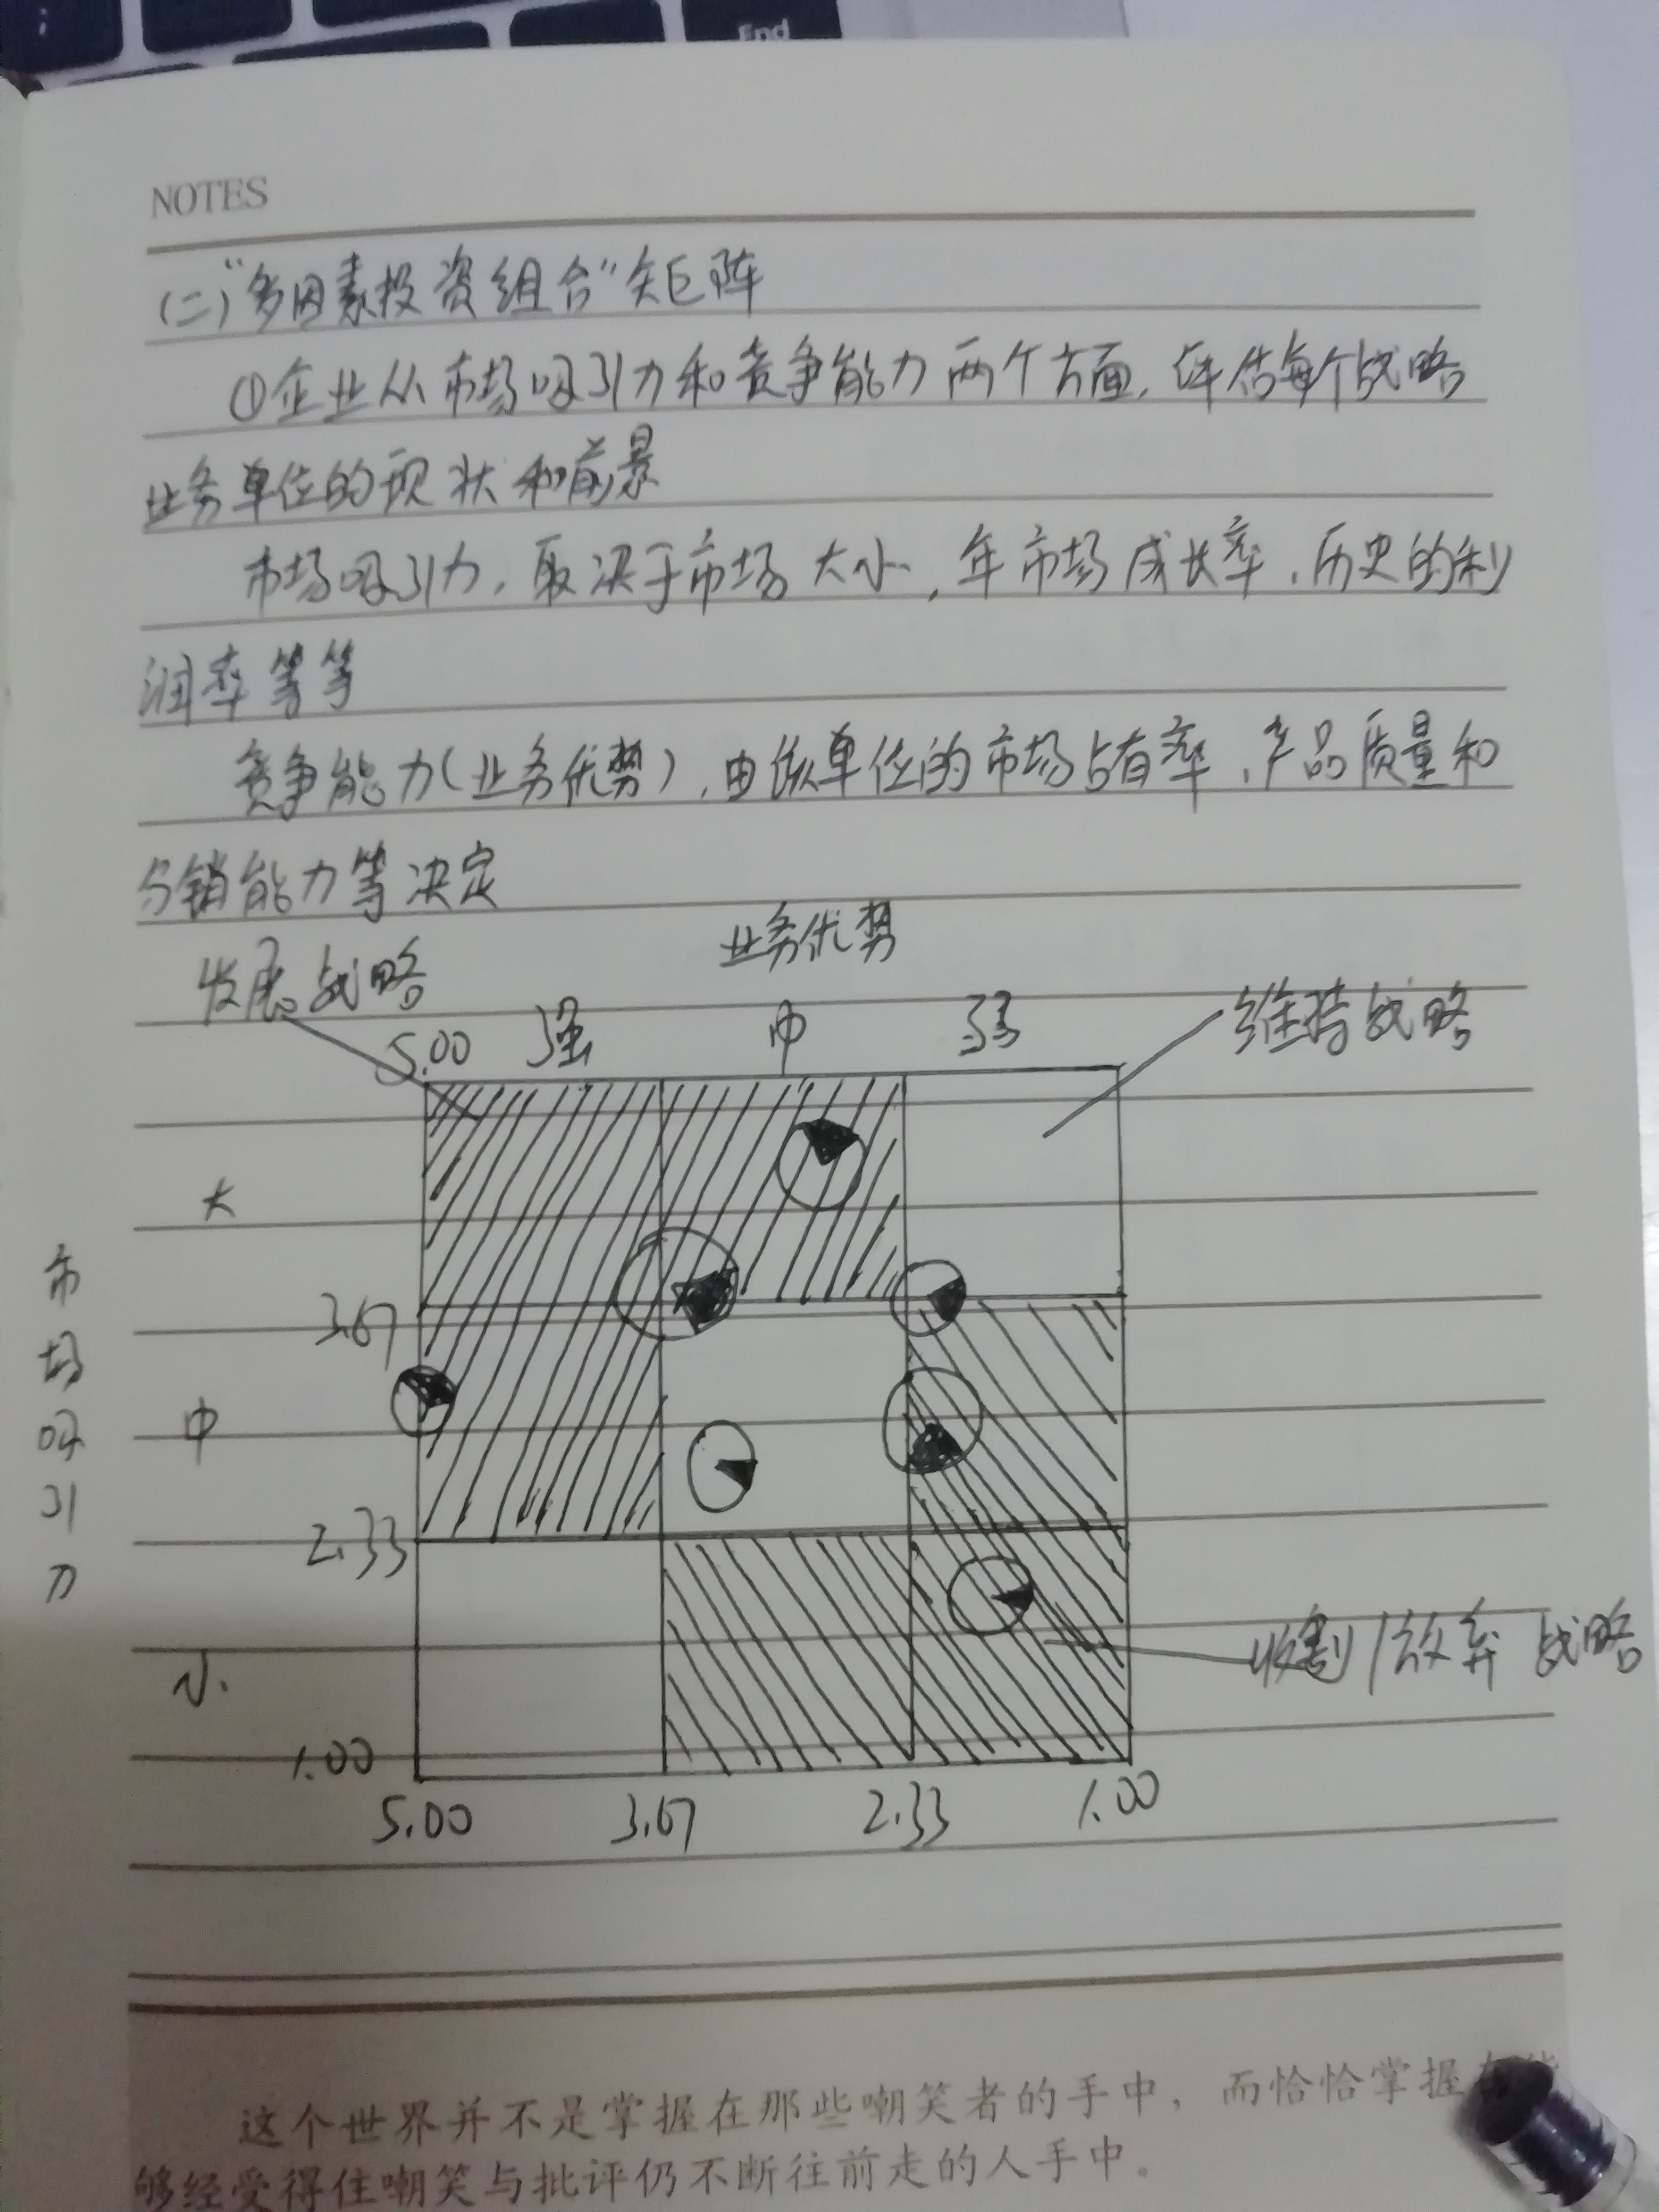 End
NOTES
(二)“多因素投资组合”矩阵
①企业从市场吸引力和竞争能力两个方面,评估每个战略
业务单位的现状和前景
市场吸引力,取决于市场大小,年市场成长率,历史的利
润率等等
竞争能力(业务优势),由该单位的市场占有率,产品质量和
销能力等决定
业务优势
发展战略
维持战略
5.00 强 中 弱
大
3.67
市场吸引力
中
2.33
小
收割/放弃战略
1.00
5.00 3.67 2.33 1.00
这个世界并不是掌握在那些嘲笑者的手中,而恰恰掌握
够经受得住嘲笑与批评仍不断往前走的人手中。